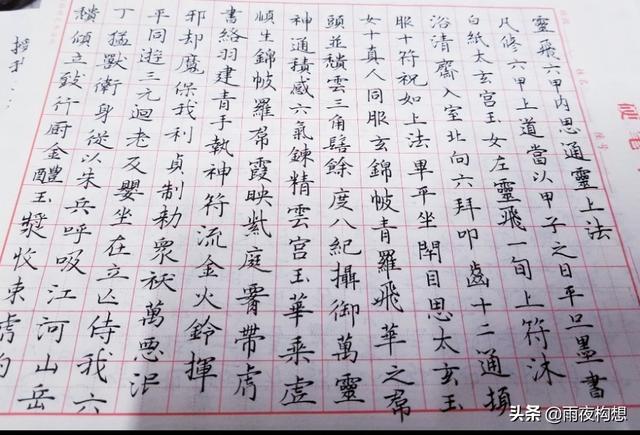 靈飛六甲內思通靈上法
凡修六甲上道當以甲子之日平旦墨書
白紙太玄宮玉女左靈飛一旬上符沐
浴清齋入室北向六拜叩齒十二通頓
服十符祝如上法畢平坐閉目思太玄玉
女十真人同服玄錦帔青羅飛華之帬
頭並穨雲三角髻餘度八紀攝御萬靈
神通積感六氣鍊精雲宮玉華乘虛
順生錦帔羅帬霞映紫庭腎帶虎
書絡羽建青手執神符流金火鈴揮
邪却魔保我利貞制勑衆祅萬惡泯
平同遊三元迴老及嬰坐在立亡侍我六
丁猛獸衛身從以朱兵呼吸江河山岳
穨傾立致行廚金醴玉漿收束虎豹
头条 @雨夜构想